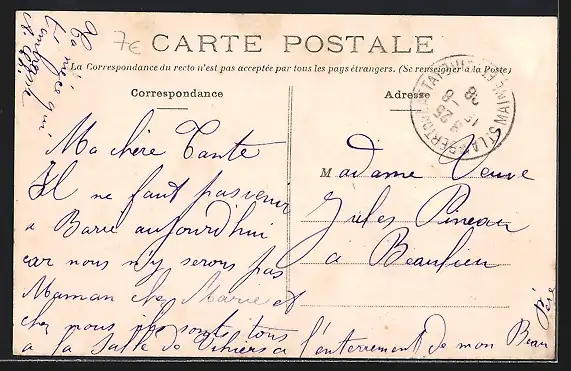 Ta nièce qui
t'embrasse
7€
CARTE POSTALE
La Correspondance du recto n'est pas acceptée par tous les pays étrangers. (Se renseigner à la Poste)
Correspondance
Adresse
Ma chère Tante
Il ne faut pas venir
a Barré aujourd'hui
car nous n'y serons pas
Maman che Marie et
chez nous ils sont tous
a la Salle de Vihiers a l'enterrement de mon Beau
Père
Madame Veuve
Jules Pineau
à Beaulieu
MAINE ET